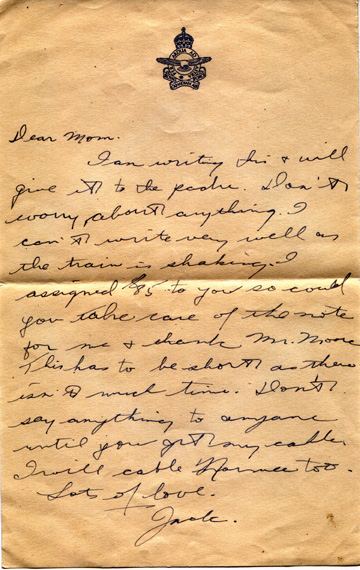 Dear Mom.
I am writing this & will
give it to the padre. Don't
worry about anything. I
can't write very well as
the train is shaking. I
assigned $85 to you so could
you take care of the note
for me & thank Mr. Moore
This has to be short as there
isn't much time. Don't
say anything to anyone
until you get my cable.
I will cable too.
Lots of love.
Jack.